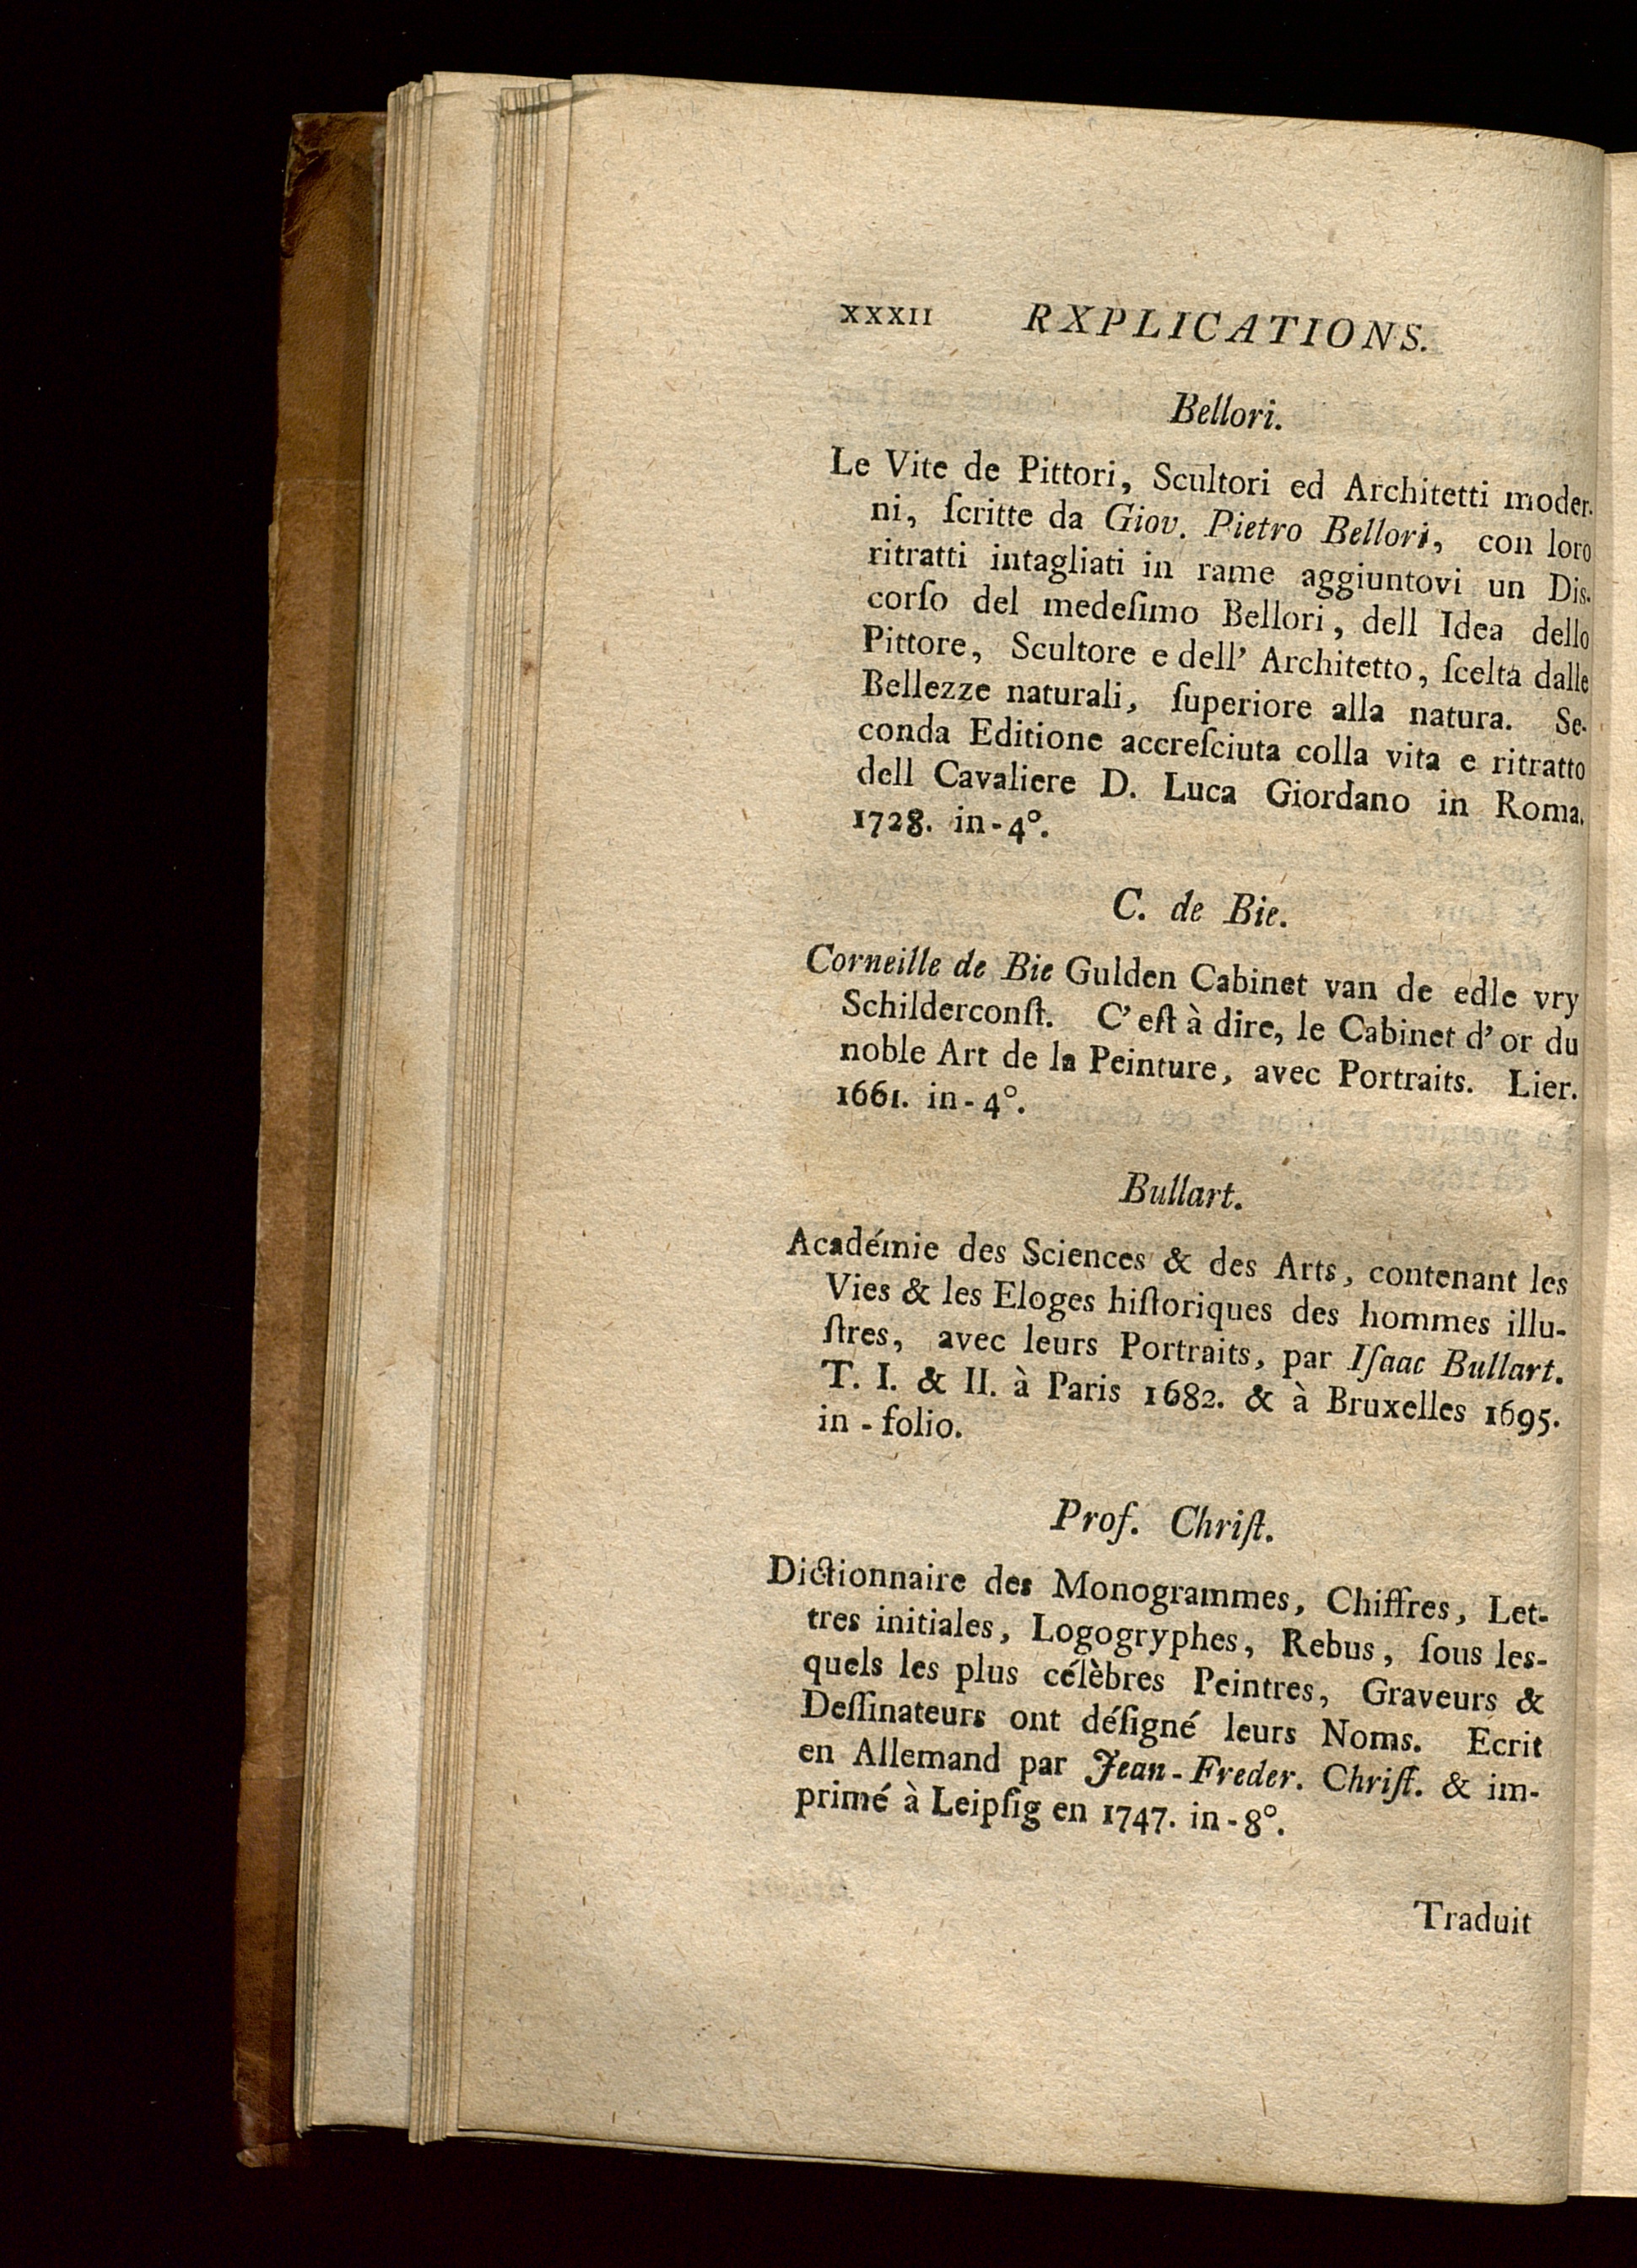 XXXII RXPLICATIONS.
Bellori.
Le Vite de Pittori, Scultori ed Architetti moder-
ni, ſcritte da Giov. Pietro Bellori, con loro
ritratti intagliati in rame aggiuntovi un Dis-
corſo del medeſimo Bellori, dell Idea dello
Pittore, Scultore e dell' Architetto, ſcelta dalle
Bellezze naturali, ſuperiore alla natura. Se-
conda Editione accreſciuta colla vita e ritratto
dell Cavaliere D. Luca Giordano in Roma.
1728. in-4°.
C. de Bie.
Corneille de Bie Gulden Cabinet van de edle vry
Schilderconſt. C'eſt à dire, le Cabinet d'or du
noble Art de la Peinture, avec Portraits. Lier.
1661. in-4°.
Bullart.
Académie des Sciences & des Arts, contenant les
Vies & les Eloges hiſtoriques des hommes illu-
ſtres, avec leurs Portraits, par Iſaac Bullart.
T. I. & II. à Paris 1682. & à Bruxelles 1695.
in-folio.
Prof. Chriſt.
Dictionnaire des Monogrammes, Chiffres, Let-
tres initiales, Logogryphes, Rebus, ſous les-
quels les plus célèbres Peintres, Graveurs &
Deſſinateurs ont déſigné leurs Noms. Ecrit
en Allemand par Jean-Freder. Chriſt. & im-
primé à Leipſig en 1747. in-8°.
Traduit